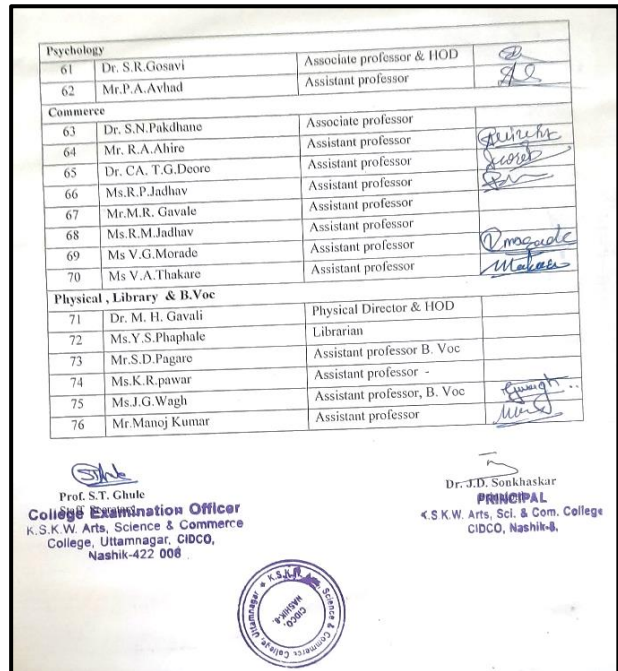 Psychology
61 Dr. S.R.Gosavi Associate professor & HOD
62 Mr.P.A.Avhad Assistant professor
Commerce
63 Dr. S.N.Pakdhane Associate professor
64 Mr. R.A.Ahire Assistant professor
65 Dr. CA. T.G.Deore Assistant professor
66 Ms.R.P.Jadhav Assistant professor
67 Mr.M.R. Gavale Assistant professor
68 Ms.R.M.Jadhav Assistant professor
69 Ms V.G.Morade Assistant professor
70 Ms V.A.Thakare Assistant professor
Physical , Library & B.Voc
71 Dr. M. H. Gavali Physical Director & HOD
72 Ms.Y.S.Phaphale Librarian
73 Mr.S.D.Pagare Assistant professor B. Voc
74 Ms.K.R.pawar Assistant professor -
75 Ms.J.G.Wagh Assistant professor, B. Voc
76 Mr.Manoj Kumar Assistant professor
Prof. S.T. Ghule
College Examination Officer
K.S.K.W. Arts, Science & Commerce
College, Uttamnagar, CIDCO,
Nashik-422 008
Dr. J.D. Sonkhaskar
PRINCIPAL
K.S K.W. Arts, Sci. & Com. College
CIDCO, Nashik-8.
Science & Commerce College, Uttamnagar
CIDCO,
NASHIK-8.